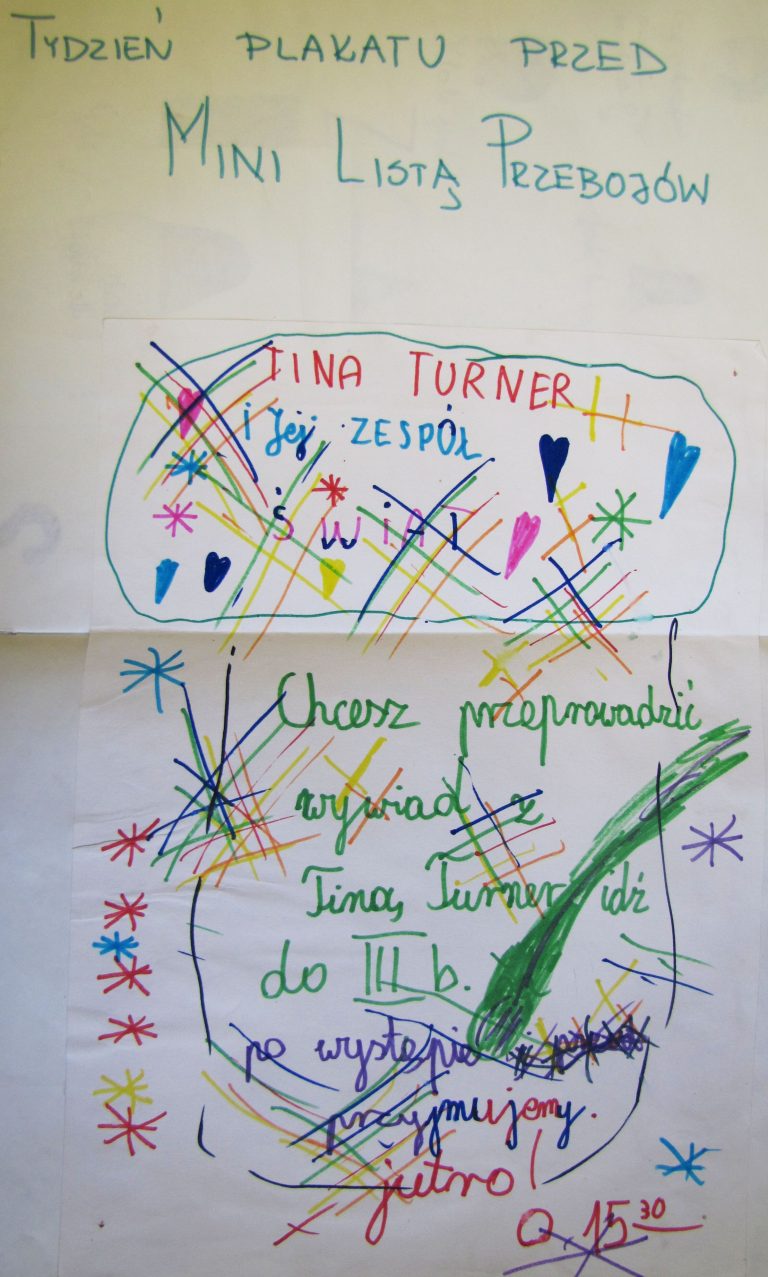 TYDZIEŃ PLAKATU PRZED
MINI LISTĄ PRZEBOJÓW
TINA TURNER
i Jej ZESPÓŁ
ŚWIAT
Chcesz przeprowadzić
wywiad z
Tiną Turner idź
do III b.
po występie
przyjmujemy.
jutro!
O 15 30